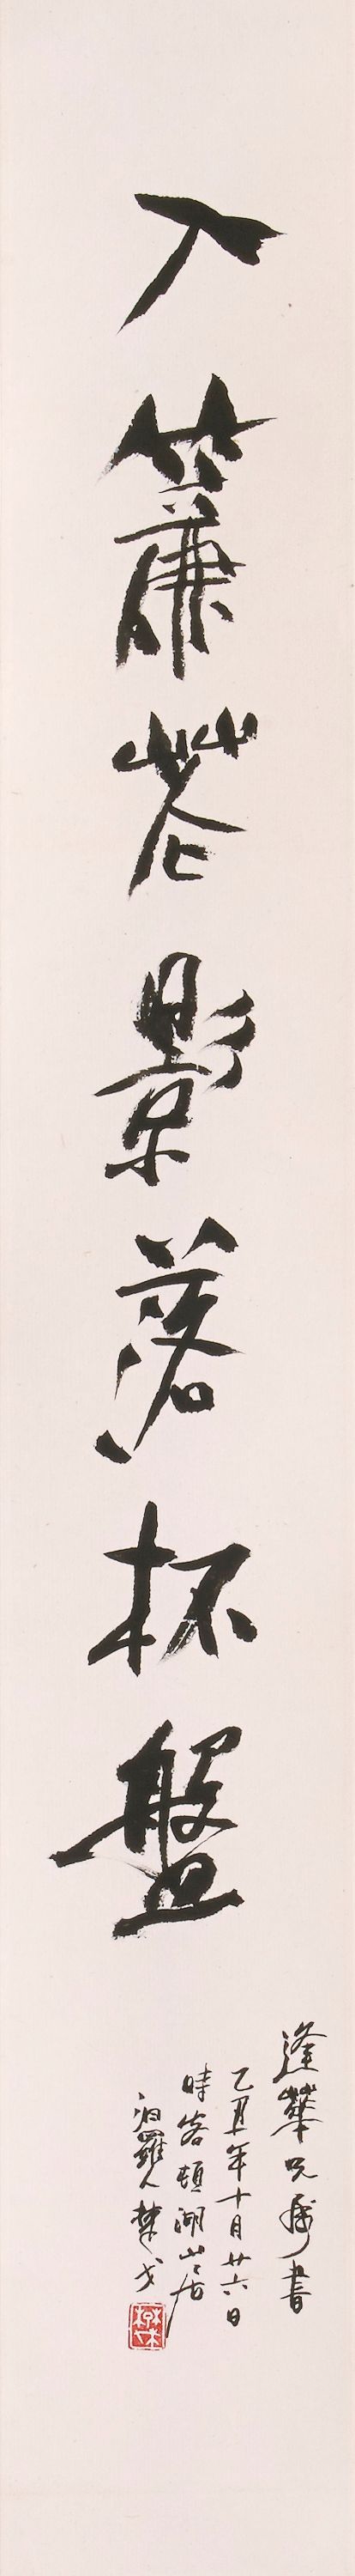 入簾花影落杯盤
逢華兄属書
乙丑年十月廿六日
時客頓湖山居
汨羅人楚戈